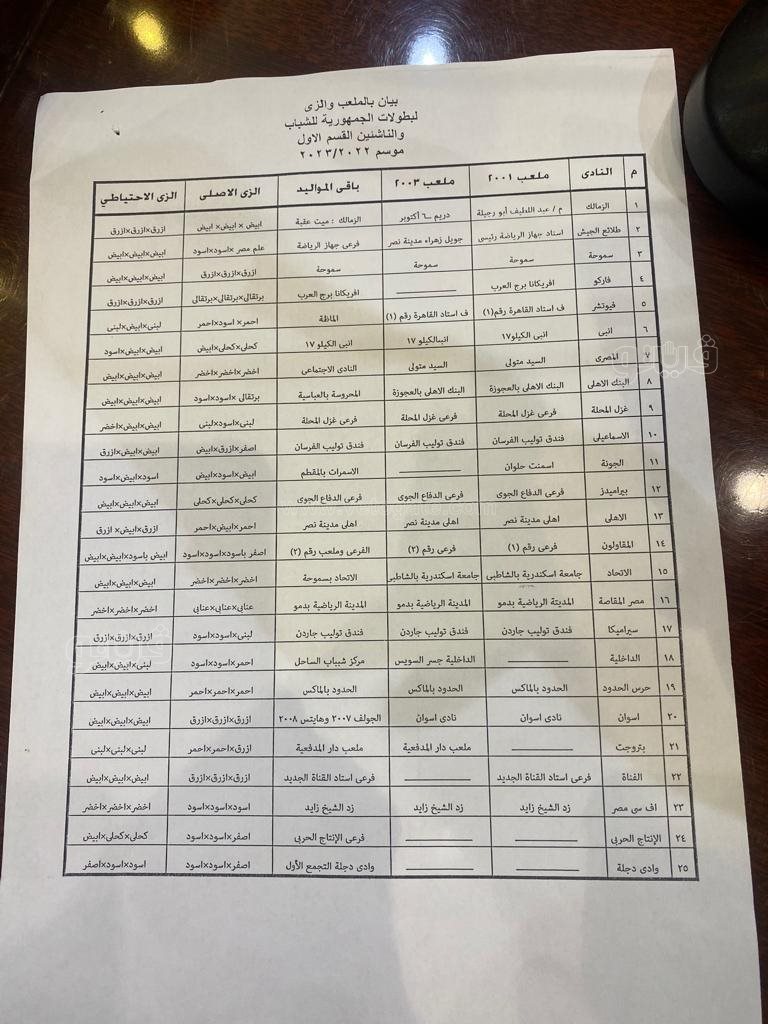 بيان بالملعب والزى
لبطولات الجمهورية للشباب
والناشئين القسم الاول
موسم ٢٠٢٣/٢٠٢٢
م النادى ملعب ٢٠٠١ ملعب ٢٠٠٣ باقى المواليد الزى الاصلى الزى الاحتياطي
١ الزمالك م / عبد اللطيف أبو رجيلة دريم ٦ أكتوبر الزمالك : ميت عقبة ابيض × ابيض× ابيض ازرق×ازرق×ازرق
٢ طلائع الجيش استاد جهاز الرياضة رئيسى جويل زهراء مدينة نصر فرعى جهاز الرياضة علم مصر ×اسود×اسود ابيض×ابيض×ابيض
٣ سموحة سموحة سموحة سموحة ازرق×ازرق×ازرق ابيض×ابيض×ابيض
٤ فاركو افريكانا برج العرب افريكانا برج العرب برتقالى×برتقالى×برتقالى ازرق×ازرق×ازرق
٥ فيوتشر ف استاد القاهرة رقم(١) ف استاد القاهرة رقم (١) الماظة احمر× اسود×احمر لبنى×ابيض×لبنى
٦ انبى انبى الكيلو١٧ انبىالكيلو ١٧ انبى الكيلو ١٧ كحلى×كحلى×ابيض ابيض×ابيض×اسود
٧ المصرى السيد متولى السيد متولى النادى الاجتماعى اخضر×اخضر×اخضر ابيض×ابيض×ابيض
٨ البنك الاهلى البنك الاهلى بالعجوزة البنك الاهلى بالعجوزة المحروسة بالعباسية برتقالى ×اسود×اسود ابيض×ابيض×ابيض
٩ غزل المحلة فرعى غزل المحلة فرعى غزل المحلة فرعى غزل المحلة لبنى×اسود×لبنى ابيض×ابيض×اخضر
١٠ الاسماعيلى فندق توليب الفرسان فندق توليب الفرسان فندق توليب الفرسان اصفر×ازرق×ابيض ابيض×ابيض×ازرق
١١ الجونة اسمنت حلوان الاسمرات بالمقطم ابيض×اسود×ابيض اسود×ابيض×اسود
١٢ بيراميدز فرعى الدفاع الجوى فرعى الدفاع الجوى فرعى الدفاع الجوى كحلى×كحلى×كحلى ابيض×ابيض×ابيض
١٣ الاهلى اهلى مدينة نصر اهلى مدينة نصر اهلى مدينة نصر احمر×ابيض×احمر ازرق×ابيض× ازرق
١٤ المقاولون فرعى رقم (١) فرعى رقم (٢) الفرعى وملعب رقم (٢) اصفر باسود×اسود×اسود ابيض باسود×ابيض×ابيض
١٥ الاتحاد جامعة اسكندرية بالشاطبى جامعة اسكندرية بالشاطبى الاتحاد بسموحة اخضر×اخضر×اخضر ابيض×ابيض×ابيض
١٦ مصر المقاصة المدينة الرياضية بدمو المدينة الرياضية بدمو المدينة الرياضية بدمو عنابى×عنابى×عنابى اخضر×اخضر×اخضر
١٧ سيراميكا فندق توليب جاردن فندق توليب جاردن فندق توليب جاردن لبنى×اسود×اسود ازرق×ازرق×ازرق
١٨ الداخلية الداخلية جسر السويس مركز شبياب الساحل احمر×اسود×اسود لبنى×ابيض×ابيض
١٩ حرس الحدود الحدود بالماكس الحدود بالماكس الحدود بالماكس احمر×احمر×احمر ابيض×ابيض×ابيض
٢٠ اسوان نادى اسوان نادى اسوان الجولف ٢٠٠٧ وهايتس ٢٠٠٨ ازرق×ازرق×ازرق ابيض×ابيض×ابيض
٢١ بتروجت ملعب دار المدفعية ملعب دار المدفعية ازرق×احمر×احمر لبنى×لبنى×لبنى
٢٢ القناة فرعى استاد القناة الجديد فرعى استاد القناة الجديد ازرق×ازرق×ازرق ابيض×ابيض×ابيض
٢٣ اف سى مصر زد الشيخ زايد زد الشيخ زايد زد الشيخ زايد اسود×اسود×اسود اخضر×اخضر×اخضر
٢٤ الإنتاج الحربى فرعى الإنتاج الحربى اصفر×اسود×اسود كحلى×كحلى×ابيض
٢٥ وادى دجلة وادى دجلة التجمع الأول اصفر×اسود×اسود اسود×اسود×اصفر